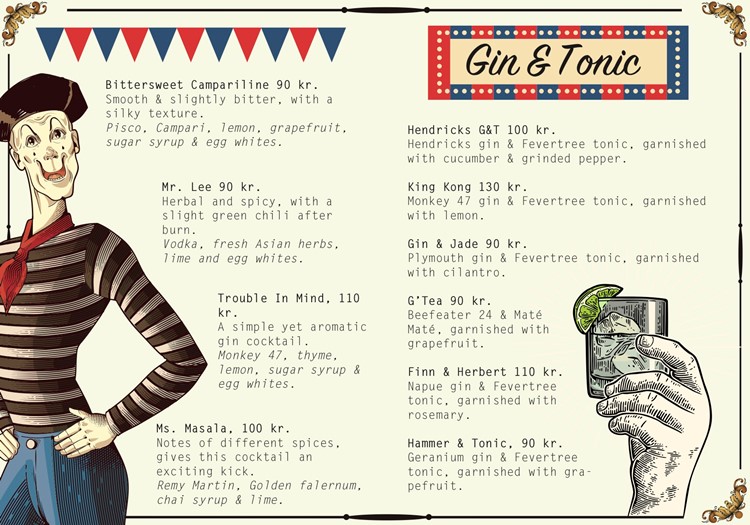 Bittersweet Campariline 90 kr.
Smooth & slightly bitter, with a
silky texture.
Pisco, Campari, lemon, grapefruit,
sugar syrup & egg whites.
Mr. Lee 90 kr.
Herbal and spicy, with a
slight green chili after
burn.
Vodka, fresh Asian herbs,
lime and egg whites.
Trouble In Mind, 110
kr.
A simple yet aromatic
gin cocktail.
Monkey 47, thyme,
lemon, sugar syrup &
egg whites.
Ms. Masala, 100 kr.
Notes of different spices,
gives this cocktail an
exciting kick.
Remy Martin, Golden falernum,
chai syrup & lime.
Gin & Tonic
Hendricks G&T 100 kr.
Hendricks gin & Fevertree tonic, garnished
with cucumber & grinded pepper.
King Kong 130 kr.
Monkey 47 gin & Fevertree tonic, garnished
with lemon.
Gin & Jade 90 kr.
Plymouth gin & Fevertree tonic, garnished
with cilantro.
G'Tea 90 kr.
Beefeater 24 & Maté
Maté, garnished with
grapefruit.
Finn & Herbert 110 kr.
Napue gin & Fevertree
tonic, garnished with
rosemary.
Hammer & Tonic, 90 kr.
Geranium gin & Fevertree
tonic, garnished with gra-
pefruit.